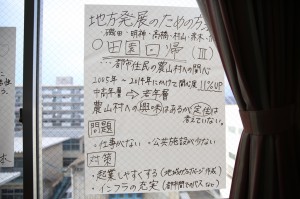 地方発展のための方
・磯田・明神・高橋・村山・赤木・
○田園回帰(Ⅲ)
都市住民の農山村への関心
2005年~2014年にかけて関心度11%UP
中高年層 → 若年層
農山村への興味はあるが定住は
考えていない。
問題
・仕事がない ・公共施設が少ない
対策
・起業しやすくする(地域
・インフラの充実(都市間でのバスなど)